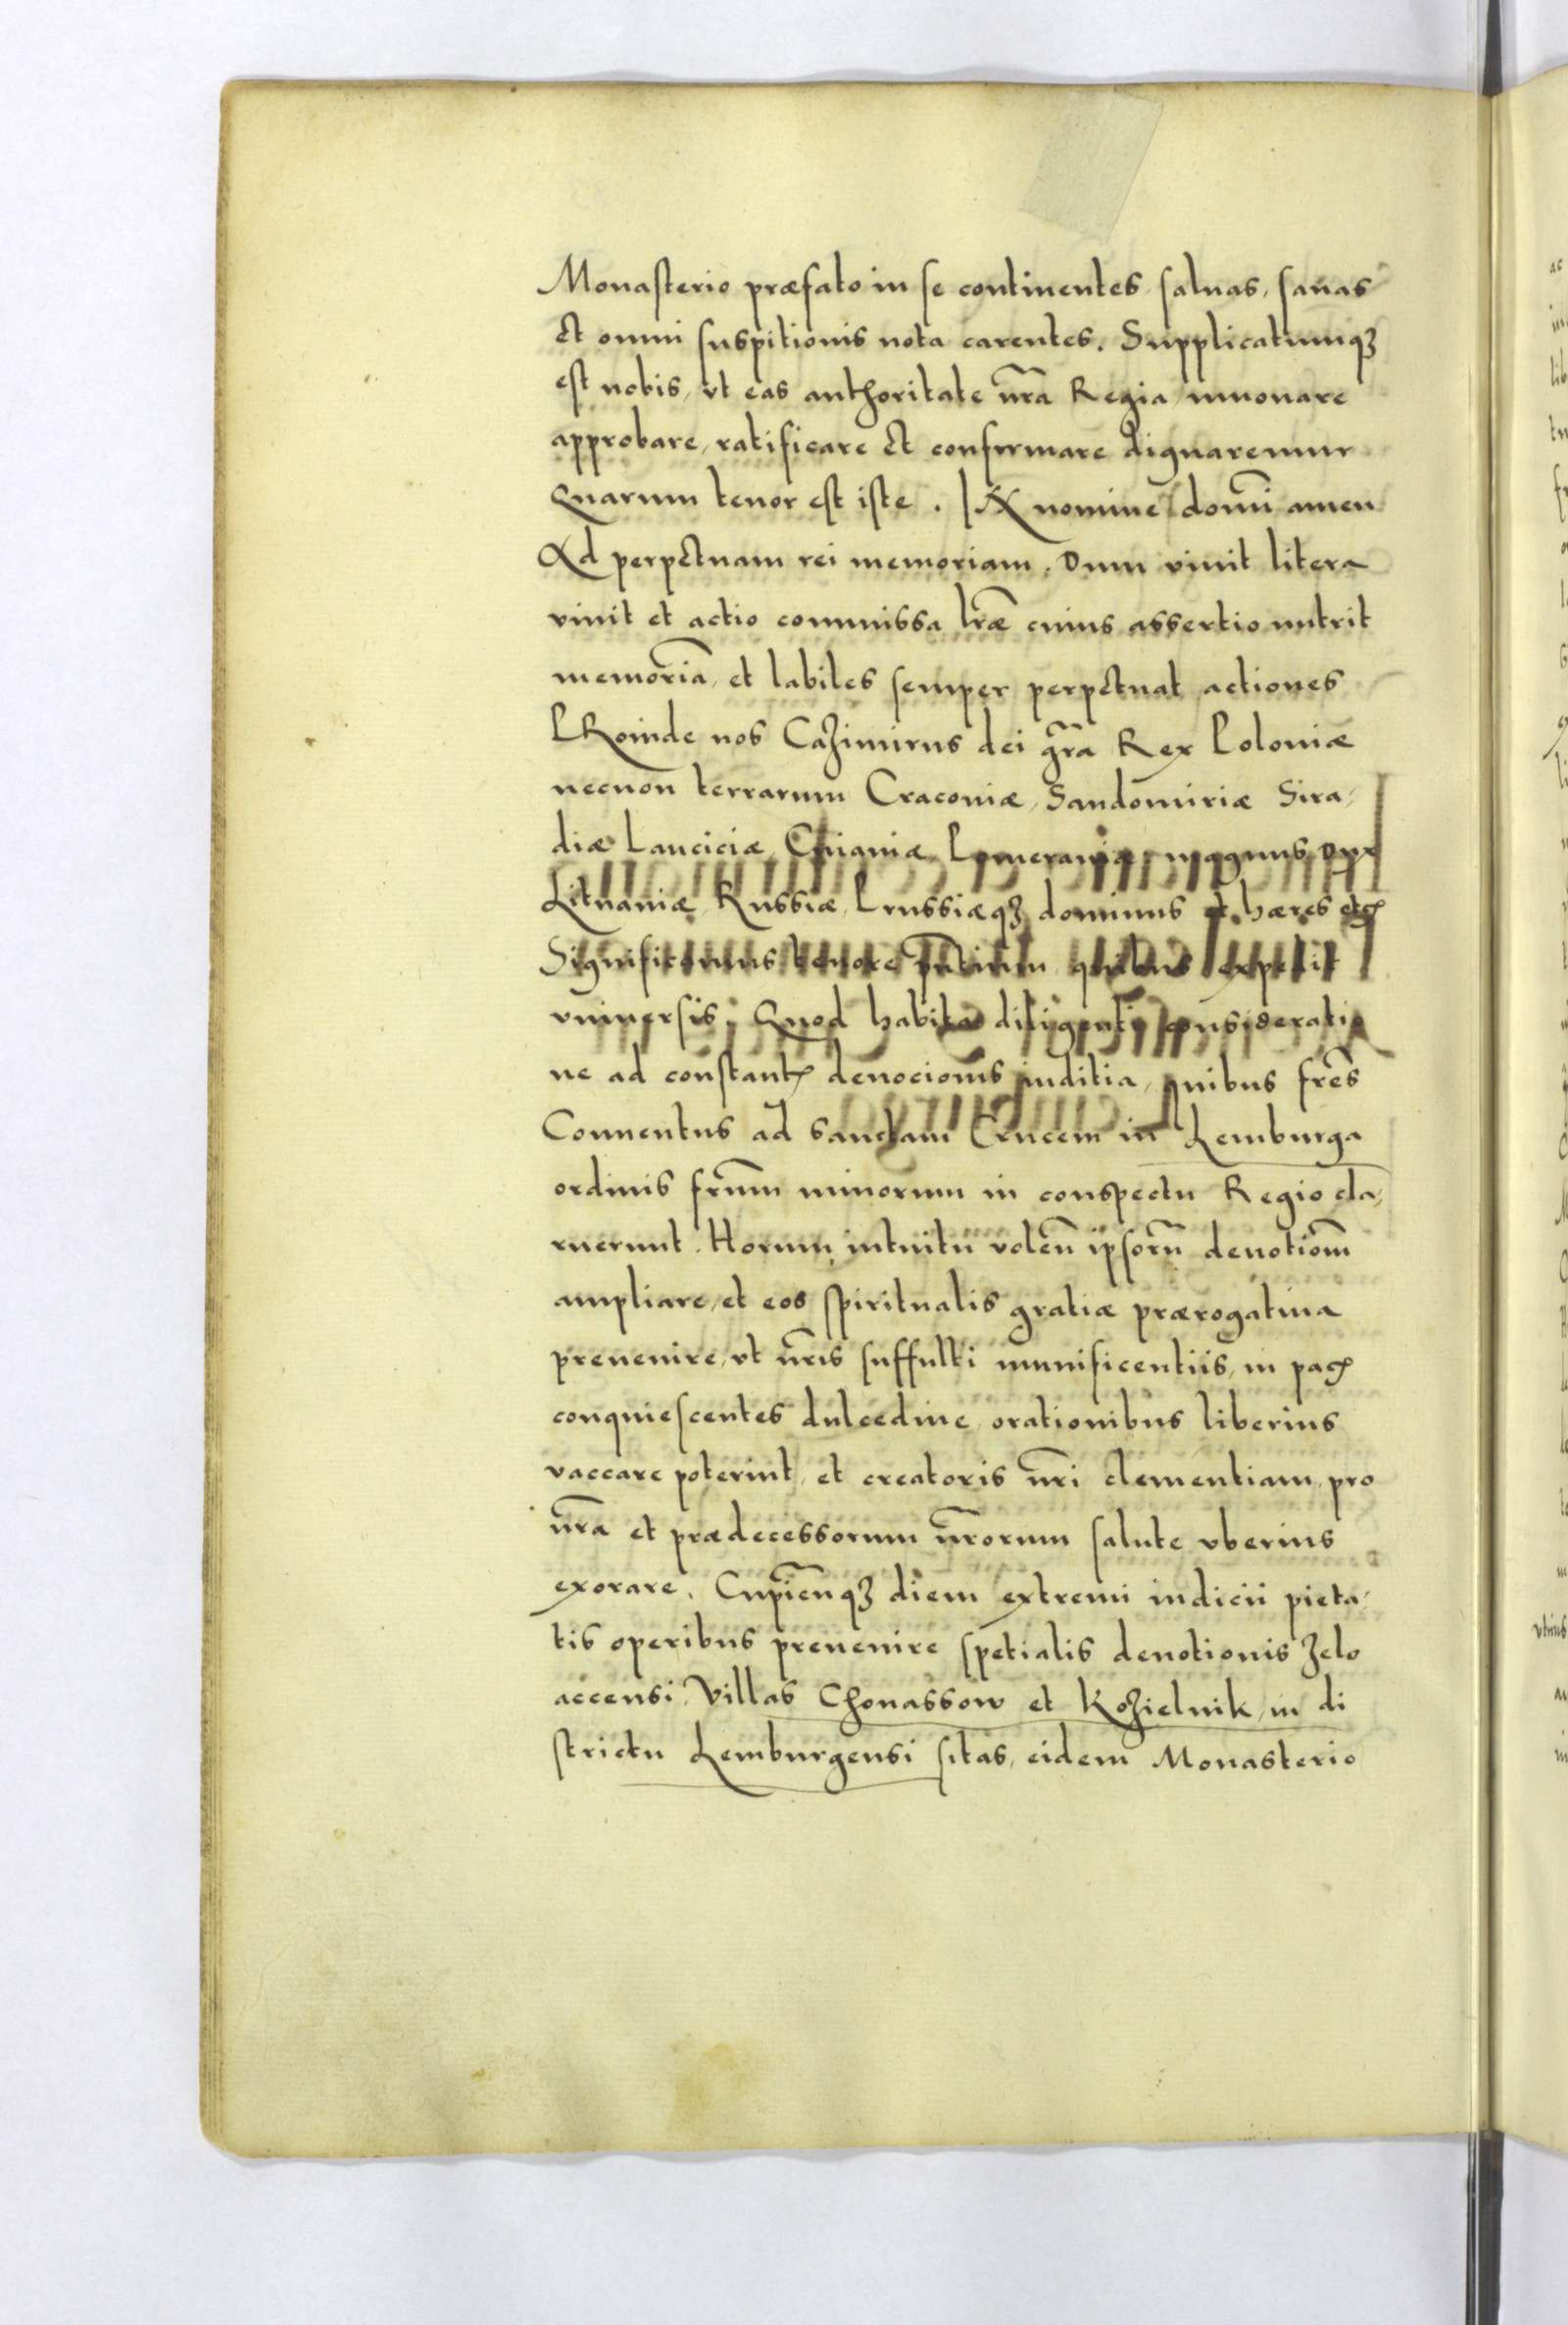 Monasterio præfato in se continentes saluas, sanas
et omni suspitionis nota carentes. Supplicatumqꝫ
est nobis, vt eas authoritate nr̃a Regia innouare
approbare, ratificare et confirmare dignaremur
Quarum tenor est iste. IN nomine domĩ amen
Ad perpetuam rei memoriam. Dum viuit litera
viuit et actio commissa lr̃æ cuius assertio nutrit
memoriã, et labiles semper perpetuat actiones
PRoinde nos Cazimirus dei gr̃a Rex Poloniæ
necnon terrarum Cracouiæ, Sandomiriæ Sira,
diæ Lanciciæ, Cuiauiæ Pomeraniæ, magnus dux
Lituaniæ, Russiæ, Prussiæqꝫ dominus et hæres etc̃
Significamus tenore pñtium quibus expedit
vniuersis. Quod habita diligenti consideratio
ne ad constant̃ deuocionis inditia, quibus frẽs
Conuentus ad sanctam Crucem in Lemburga
ordinis frũm minorum in conspectu Regio cla,
ruerunt. Horum intuitu volẽn ipsorũ deuotiõm
ampliare, et eos spiritualis gratiæ prærogatiua
preuenire, vt nr̃is suffulti munificentiis, in pac̃
conquiescentes dulcedine orationibus liberius
vaccare poterint, et creatoris nr̃i clementiam pro
nr̃a et prædecessorum nr̃orum salute vberius
exorare. Cupiẽnqꝫ diem extremi iudicii pieta,
tis operibus preuenire spetialis deuotionis zelo
accensi, Villas Chonassow et Kozielnik, in di
strictu Lemburgensi sitas, eidem Monasterio